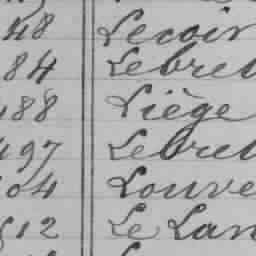 48 Lecoir
84 Lebret
188 Liège
497 Lebret
04 Louve
512 Le Lan